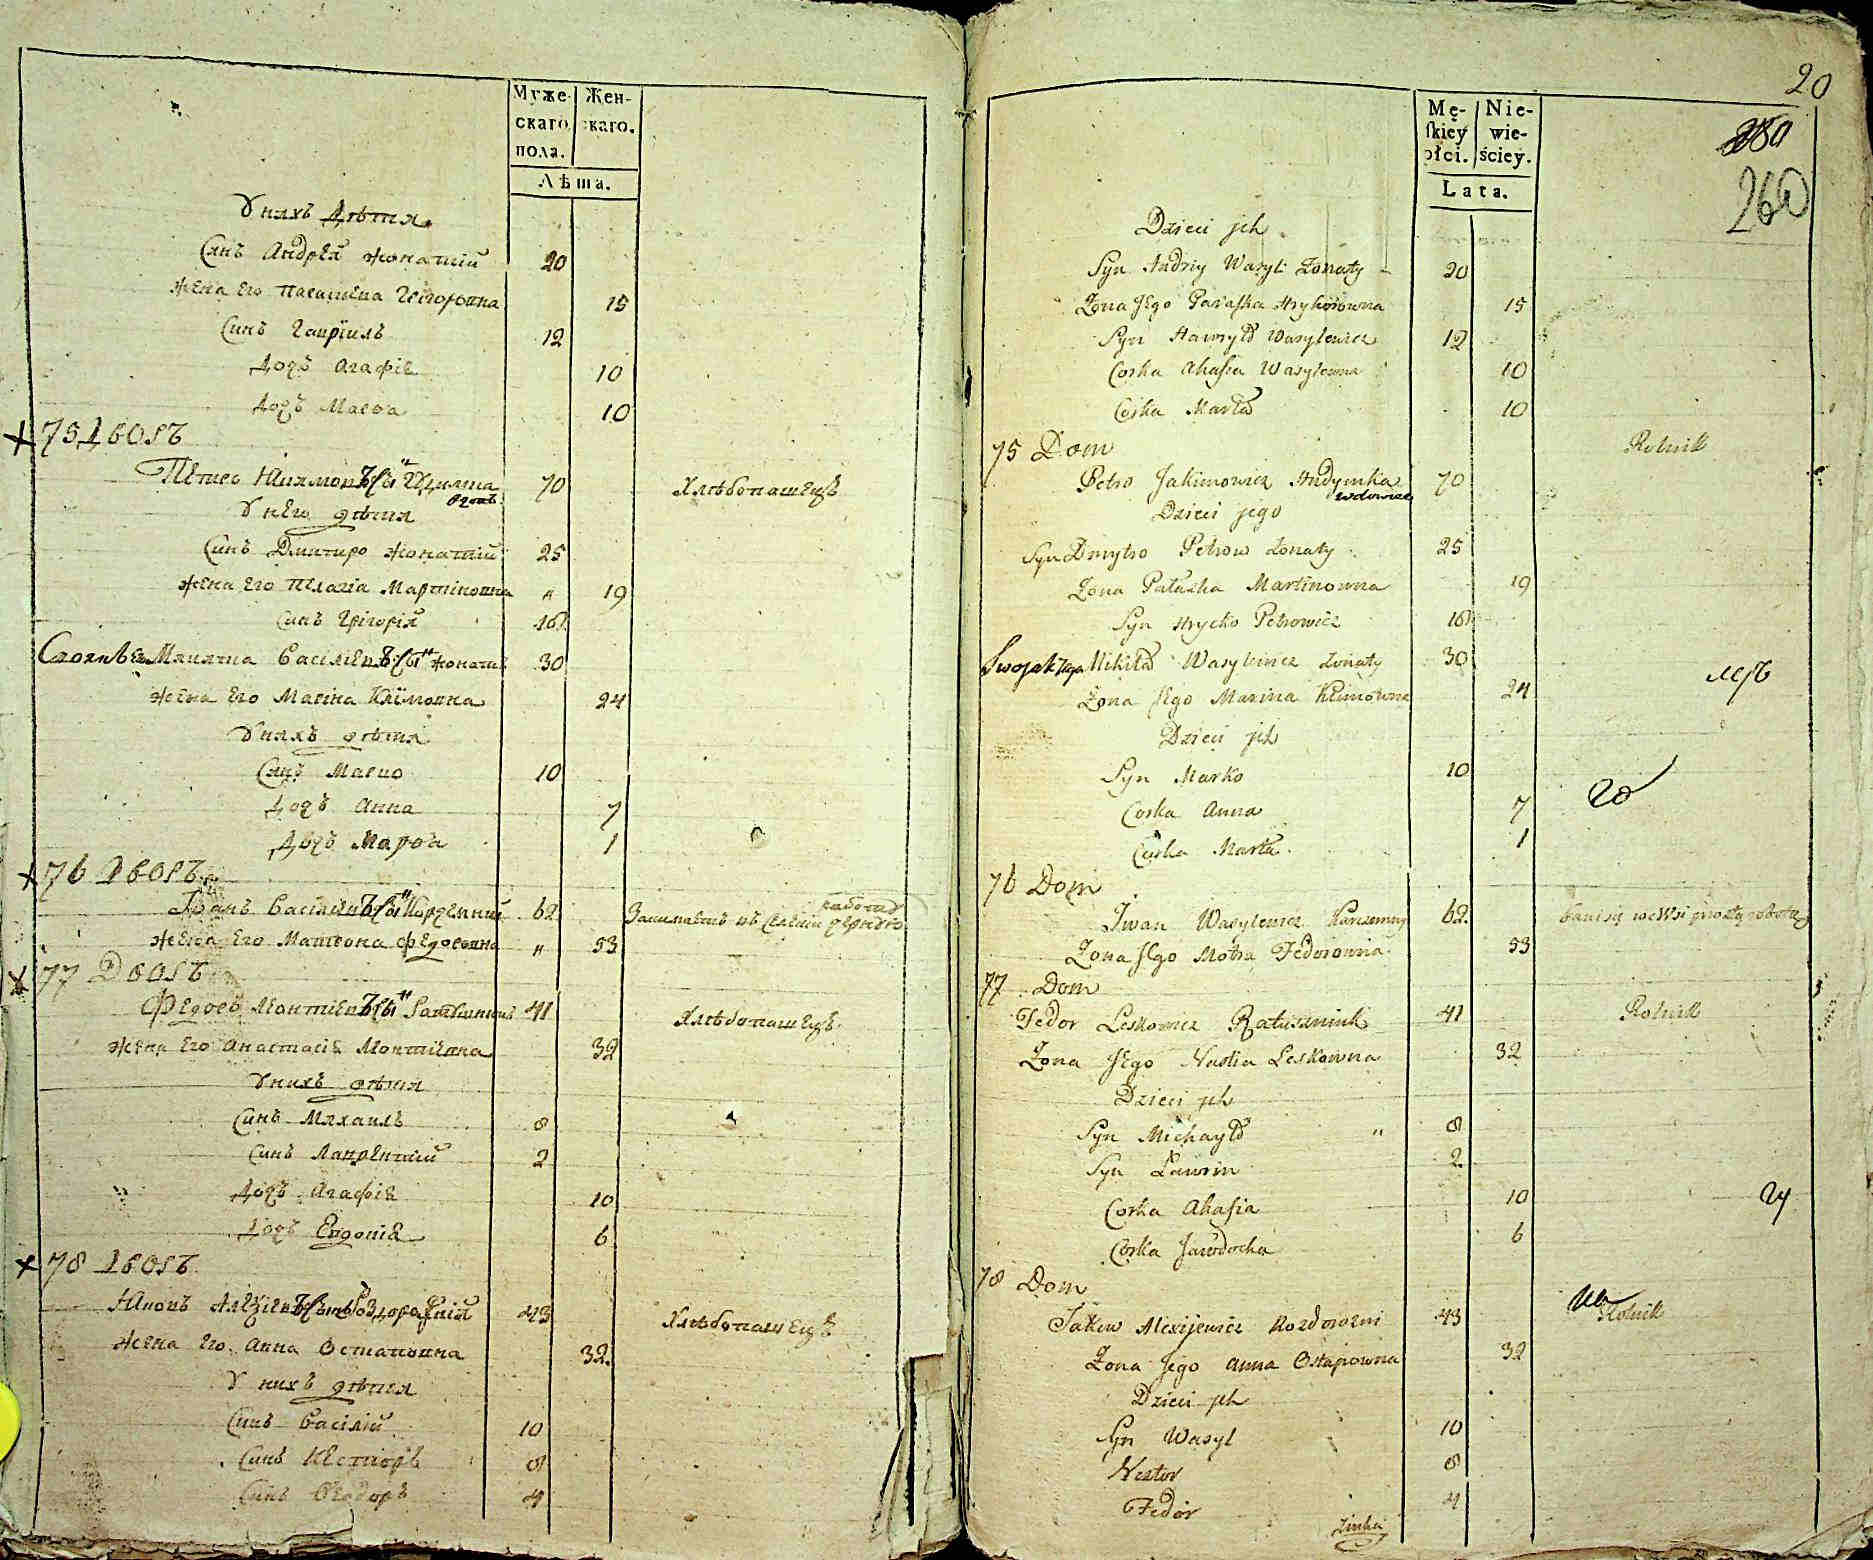 Муже-
скаго
пола.
Жен-
скаго.
Лѣта.
У нихъ дѣти
Синъ Андрей жонатий 20
Жена Его Параскева Григоровна 15
Синъ Гавріилъ 12
Дочь Агафія 10
Дочь Марѳа 10
75 Дворъ
Петръ Якимовъ Сынъ 70 Хлѣбопашецъ
вдовъ
У него дѣти
Синъ Дмитро жонатий 25
Жена Его Пелагія Мартиновна " 19
Синъ Григорій 16
Своякъ Его Микита Василіевъ Сынъ жонатъ 30
Жена Его Марина Климовна 24
У нихъ дѣти
Синъ Марко 10
Дочь Анна 7
Дочь Марѳа 1
76 Дворъ
Іванъ Василіевъ Сынъ 62
Жена Его Матрона Федоровна " 53
77 Дворъ
Федоръ Леонтіевъ Сынъ 41 Хлѣбопашецъ
Жена Его Анастасія Леонтіевна 32
У нихъ дѣти
Синъ Михаилъ 8
Синъ Лаврентий 2
Дочь Агафія 10
Дочь Евдокія 6
78 Дворъ
Яковъ Алексіевъ Сынъ 43 Хлѣбопашецъ
Жена Его Анна Остаповна 32
У нихъ дѣти
Синъ Василій 10
Синъ Несторъ 8
Синъ Ѳеодоръ 4
20
260
Mę-
skiey
płci.
Nie-
wie-
ściey.
Lata.
Dzieci jch
Syn Andriy Wasyl: żonaty 20
Żona Jego Paraska Hryhorowna 15
Syn Hawryło Wasylewicz 12
Corka Ahafia Wasylewna 10
Corka Marta 10
75 Dom Rolnik
Petro Jakimowicz Hudymka 70
wdowiec
Dzieci jego
Syn Dmytro Petrow żonaty 25
Żona Palazka Martinowna 19
Syn Hrycko Petrowicz 16
Swojak Jego Nikita Wasylewicz żonaty 30
Żona Jego Marina Klimowna 24
Dzieci jch
Syn Marko 10
Corka Anna 7
Corka Marta 1
76 Dom
Iwan Wasylewicz 62 bawi się we Wsi prostą robotą
Żona Jego Motra Fedorowna 53
77 Dom Rolnik
Fedor Leskowicz Ratusznink 41
Żona Jego Nastia Leskowna 32
Dzieci jch
Syn Michayło " 8
Syn Ławrin 2
Corka Ahafia 10
24
Corka Jawdocha 6
78 Dom
Jakow Alexijewicz Rozdorozni 43 Rolnik
Żona Jego Anna Ostapowna 32
Dzieci jch
Syn Wasyl 10
Nestor 8
Fedor 4